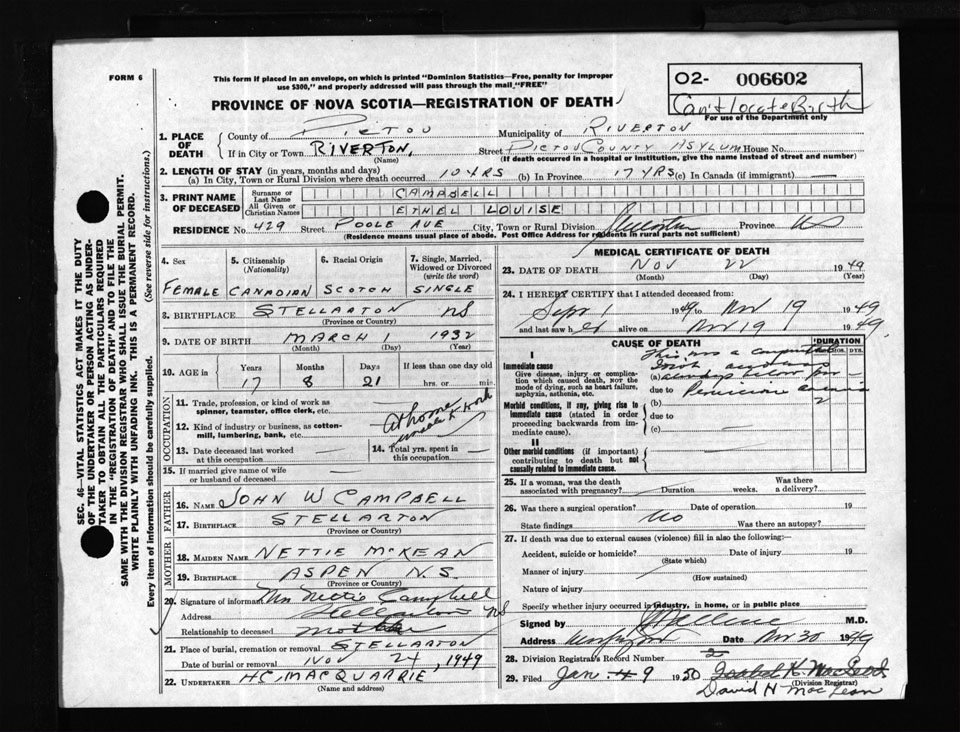 FORM 6
This form if placed in an envelope, on which is printed "Dominion Statistics—Free, penalty for improper
use $300," and properly addressed will pass through the mail "FREE"
O2- 006602
Can't locate Birth
For use of the Department only
PROVINCE OF NOVA SCOTIA—REGISTRATION OF DEATH
1. PLACE OF DEATH
County of PICTOU Municipality of RIVERTON
If in City or Town RIVERTON, Street PICTOU COUNTY ASYLUM House No.
(Name) (If death occurred in a hospital or institution, give the name instead of street and number)
2. LENGTH OF STAY (in years, months and days)
(a) In City, Town or Rural Division where death occurred 10 YRS (b) In Province 17 YRS (c) In Canada (if immigrant) —
3. PRINT NAME OF DECEASED
Surname or Last Name CAMPBELL
All Given or Christian Names ETHEL LOUISE
RESIDENCE No. 429 Street POOLE AVE City, Town or Rural Division Stellarton Province NS
(Residence means usual place of abode. Post Office Address for residents in rural parts not sufficient)
4. Sex
5. Citizenship (Nationality)
6. Racial Origin
7. Single, Married, Widowed or Divorced (write the word)
FEMALE CANADIAN SCOTCH SINGLE
8. BIRTHPLACE STELLARTON NS
(Province or Country)
9. DATE OF BIRTH MARCH 1 1932
(Month) (Day) (Year)
10. AGE in Years Months Days If less than one day old
17 8 21 hrs. or min.
OCCUPATION
11. Trade, profession, or kind of work as spinner, teamster, office clerk, etc.
At home
12. Kind of industry or business, as cotton-mill, lumbering, bank, etc.
unable to work
13. Date deceased last worked at this occupation —
14. Total yrs. spent in this occupation —
15. If married give name of wife or husband of deceased
FATHER
16. Name JOHN W CAMPBELL
17. Birthplace STELLARTON
MOTHER
18. Maiden Name NETTIE McKEAN
19. Birthplace ASPEN N.S.
(Province or Country)
20. Signature of informant Mrs Nettie Campbell
Address Stellarton NS
Relationship to deceased mother
21. Place of burial, cremation or removal STELLARTON
Date of burial or removal NOV 24, 1949
22. UNDERTAKER HC MACQUARRIE
(Name and address)
MEDICAL CERTIFICATE OF DEATH
23. DATE OF DEATH NOV 22 1949
(Month) (Day) (Year)
24. I HEREBY CERTIFY that I attended deceased from:
Sept 1 1949 to Nov 19 1949
and last saw her alive on Nov 19 1949.
CAUSE OF DEATH
DURATION
YRS. MOS. DYS.
I
Immediate cause
Give disease, injury or complication which caused death, NOT the mode of dying, such as heart failure, asphyxia, asthenia, etc.
This was a congenital
(a)
due to Pernicious anemia
Morbid conditions, if any, giving rise to immediate cause (stated in order proceeding backwards from immediate cause).
(b)
due to
(c)
II
Other morbid conditions (if important) contributing to death but not causally related to immediate cause.
25. If a woman, was the death associated with pregnancy? Duration weeks. Was there a delivery?
26. Was there a surgical operation? No Date of operation 19
State findings Was there an autopsy?
27. If death was due to external causes (violence) fill in also the following:
Accident, suicide or homicide? Date of injury 19
(State which)
Manner of injury
(How sustained)
Nature of injury
Specify whether injury occurred in industry, in home, or in public place
Signed by M.D.
Address Date Nov 30 1949
28. Division Registrar's Record Number 2
29. Filed Jan 9 1950 Isabel K. MacLeod
(Division Registrar)
David H MacLean
SEC. 46—VITAL STATISTICS ACT MAKES IT THE DUTY
OF THE UNDERTAKER OR PERSON ACTING AS UNDERTAKER
TO OBTAIN ALL THE PARTICULARS REQUIRED
IN THE "REGISTRATION OF DEATH" AND TO FILE THE
SAME WITH THE DIVISION REGISTRAR WHO SHALL ISSUE THE BURIAL PERMIT.
WRITE PLAINLY WITH UNFADING INK. THIS IS A PERMANENT RECORD.
Every item of information should be carefully supplied. (See reverse side for instructions.)